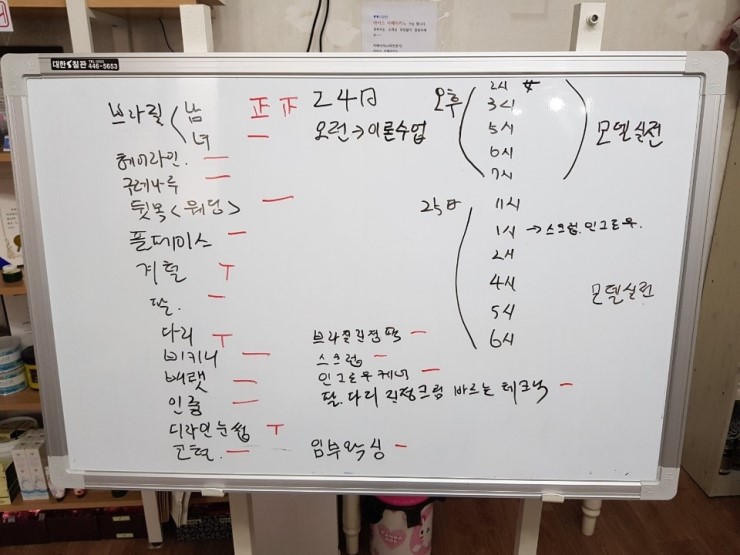 대한칠판 TEL.(02) 446-5653
브라질 < 남 正 正
녀 一
헤어라인. 一
구레나루 一
뒷목<웨딩> 一
풀페이스 一
겨털 T
팔. 一
다리 T
비키니 一
배렛 一
인중 一
디자인눈썹 T
24日
오전→이론수업
오후
2시
3시
5시
6시
7시
모델실전
11시
1시 →스크럽.인그로우.
2시
4시
5시
6시
모델실전
브라질진정팩 一
스크럽 一
인그로우케어 一
팔.다리 진정크림 바르는 테크닉 一
임부왁싱 一